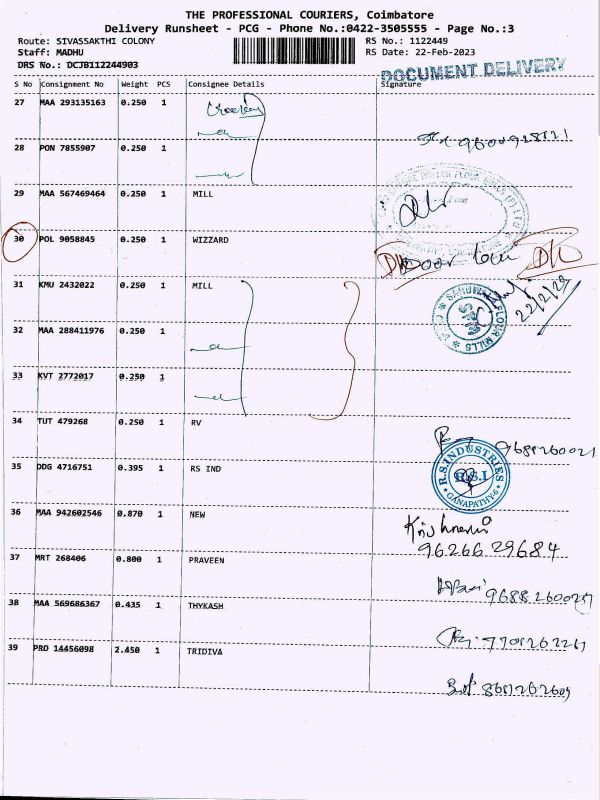 THE PROFESSIONAL COURIERS, Coimbatore
Delivery Runsheet - PCG - Phone No.:0422-3505555 - Page No.:3
Route: SIVASSAKTHI COLONY RS No.: 1122449
Staff: MADHU RS Date: 22-Feb-2023
DRS No.: DCJB112244903 DOCUMENT DELIVERY
S No Consignment No Weight PCS Consignee Details Signature
27 MAA 293135163 0.250 1
28 PON 7855907 0.250 1
29 MAA 567469464 0.250 1 MILL
30 POL 9058845 0.250 1 WIZZARD
Door lock D/L
31 KMU 2432022 0.250 1 MILL
FLOUR MILLS
22/2/23
32 MAA 288411976 0.250 1
33 KVT 2772017 0.250 1
34 TUT 479268 0.250 1 RV
9688260021
35 DDG 4716751 0.395 1 RS IND
R.S.INDUSTRIES
R.S.I
GANAPATHY-6
36 MAA 942602546 0.870 1 NEW
96266 29684
37 MRT 268406 0.800 1 PRAVEEN
38 MAA 569686367 0.435 1 THYKASH
39 PRO 14456098 2.450 1 TRIDIVA